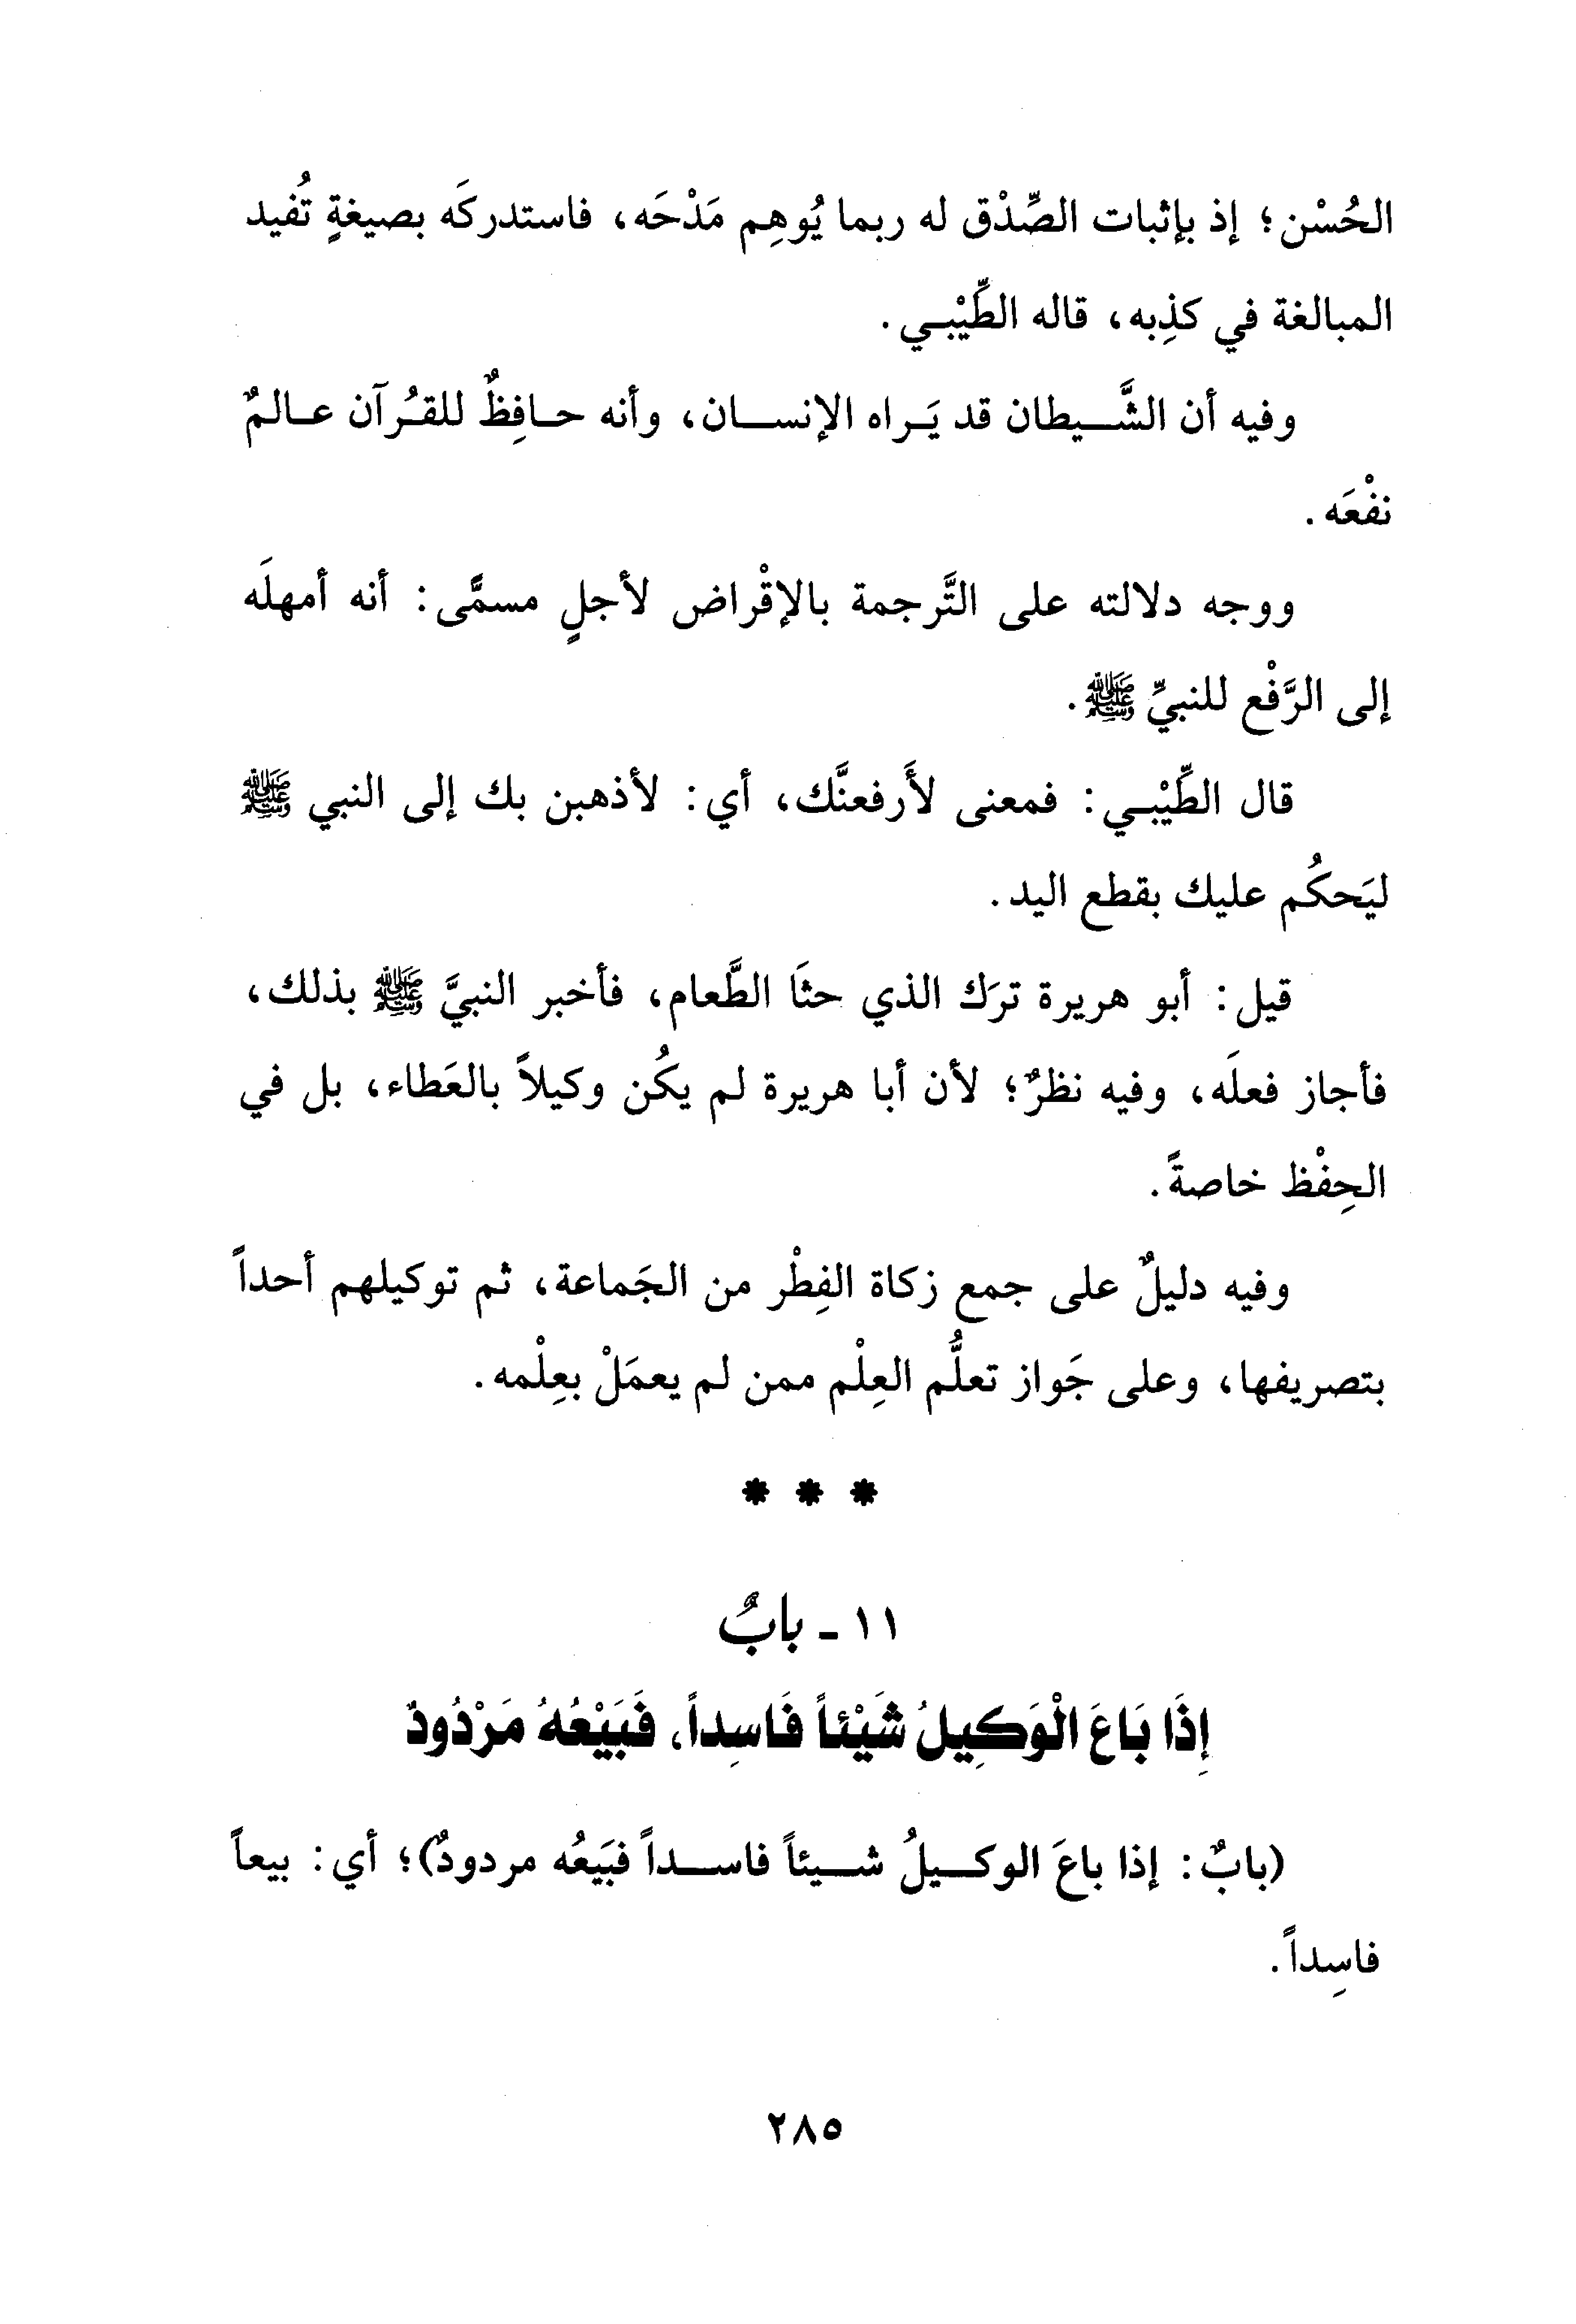 الحُسْن؛ إذ بإثبات الصِّدْق له ربما يُوهِم مَدْحَه، فاستدركَه بصيغةٍ تُفيد
المبالغة في كذِبه، قاله الطِّيْبـي.
وفيه أن الشَّـيطان قد يَـراه الإنســان، وأنه حـافِظٌ للقـُرآن عـالمٌ
نفْعَه.
ووجه دلالته على التَّرجمة بالإقْراض لأجلٍ مسمًّى: أنه أمهلَه
إلى الرَّفْع للنبيِّ ﷺ.
قال الطِّيْبـي: فمعنى لأَرفعنَّك، أي: لأذهبن بك إلى النبي ﷺ
ليَحكُم عليك بقطع اليد.
قيل: أبو هريرة ترَك الذي حثَا الطَّعام، فأخبر النبيَّ ﷺ بذلك،
فأجاز فعلَه، وفيه نظرٌ؛ لأن أبا هريرة لم يكُن وكيلاً بالعَطاء، بل في
الحِفْظ خاصةً.
وفيه دليلٌ على جمع زكاة الفِطْر من الجَماعة، ثم توكيلهم أحداً
بتصريفها، وعلى جَواز تعلُّم العِلْم ممن لم يعمَلْ بعِلْمه.
* * *
١١ - بابٌ
إِذَا بَاعَ الْوَكِيلُ شَيْئاً فَاسِداً، فَبَيْعُهُ مَرْدُودٌ
(بابٌ: إذا باعَ الوكـيلُ شـيئاً فاسـداً فبَيعُه مردودٌ)؛ أي: بيعاً
فاسِداً.
٢٨٥